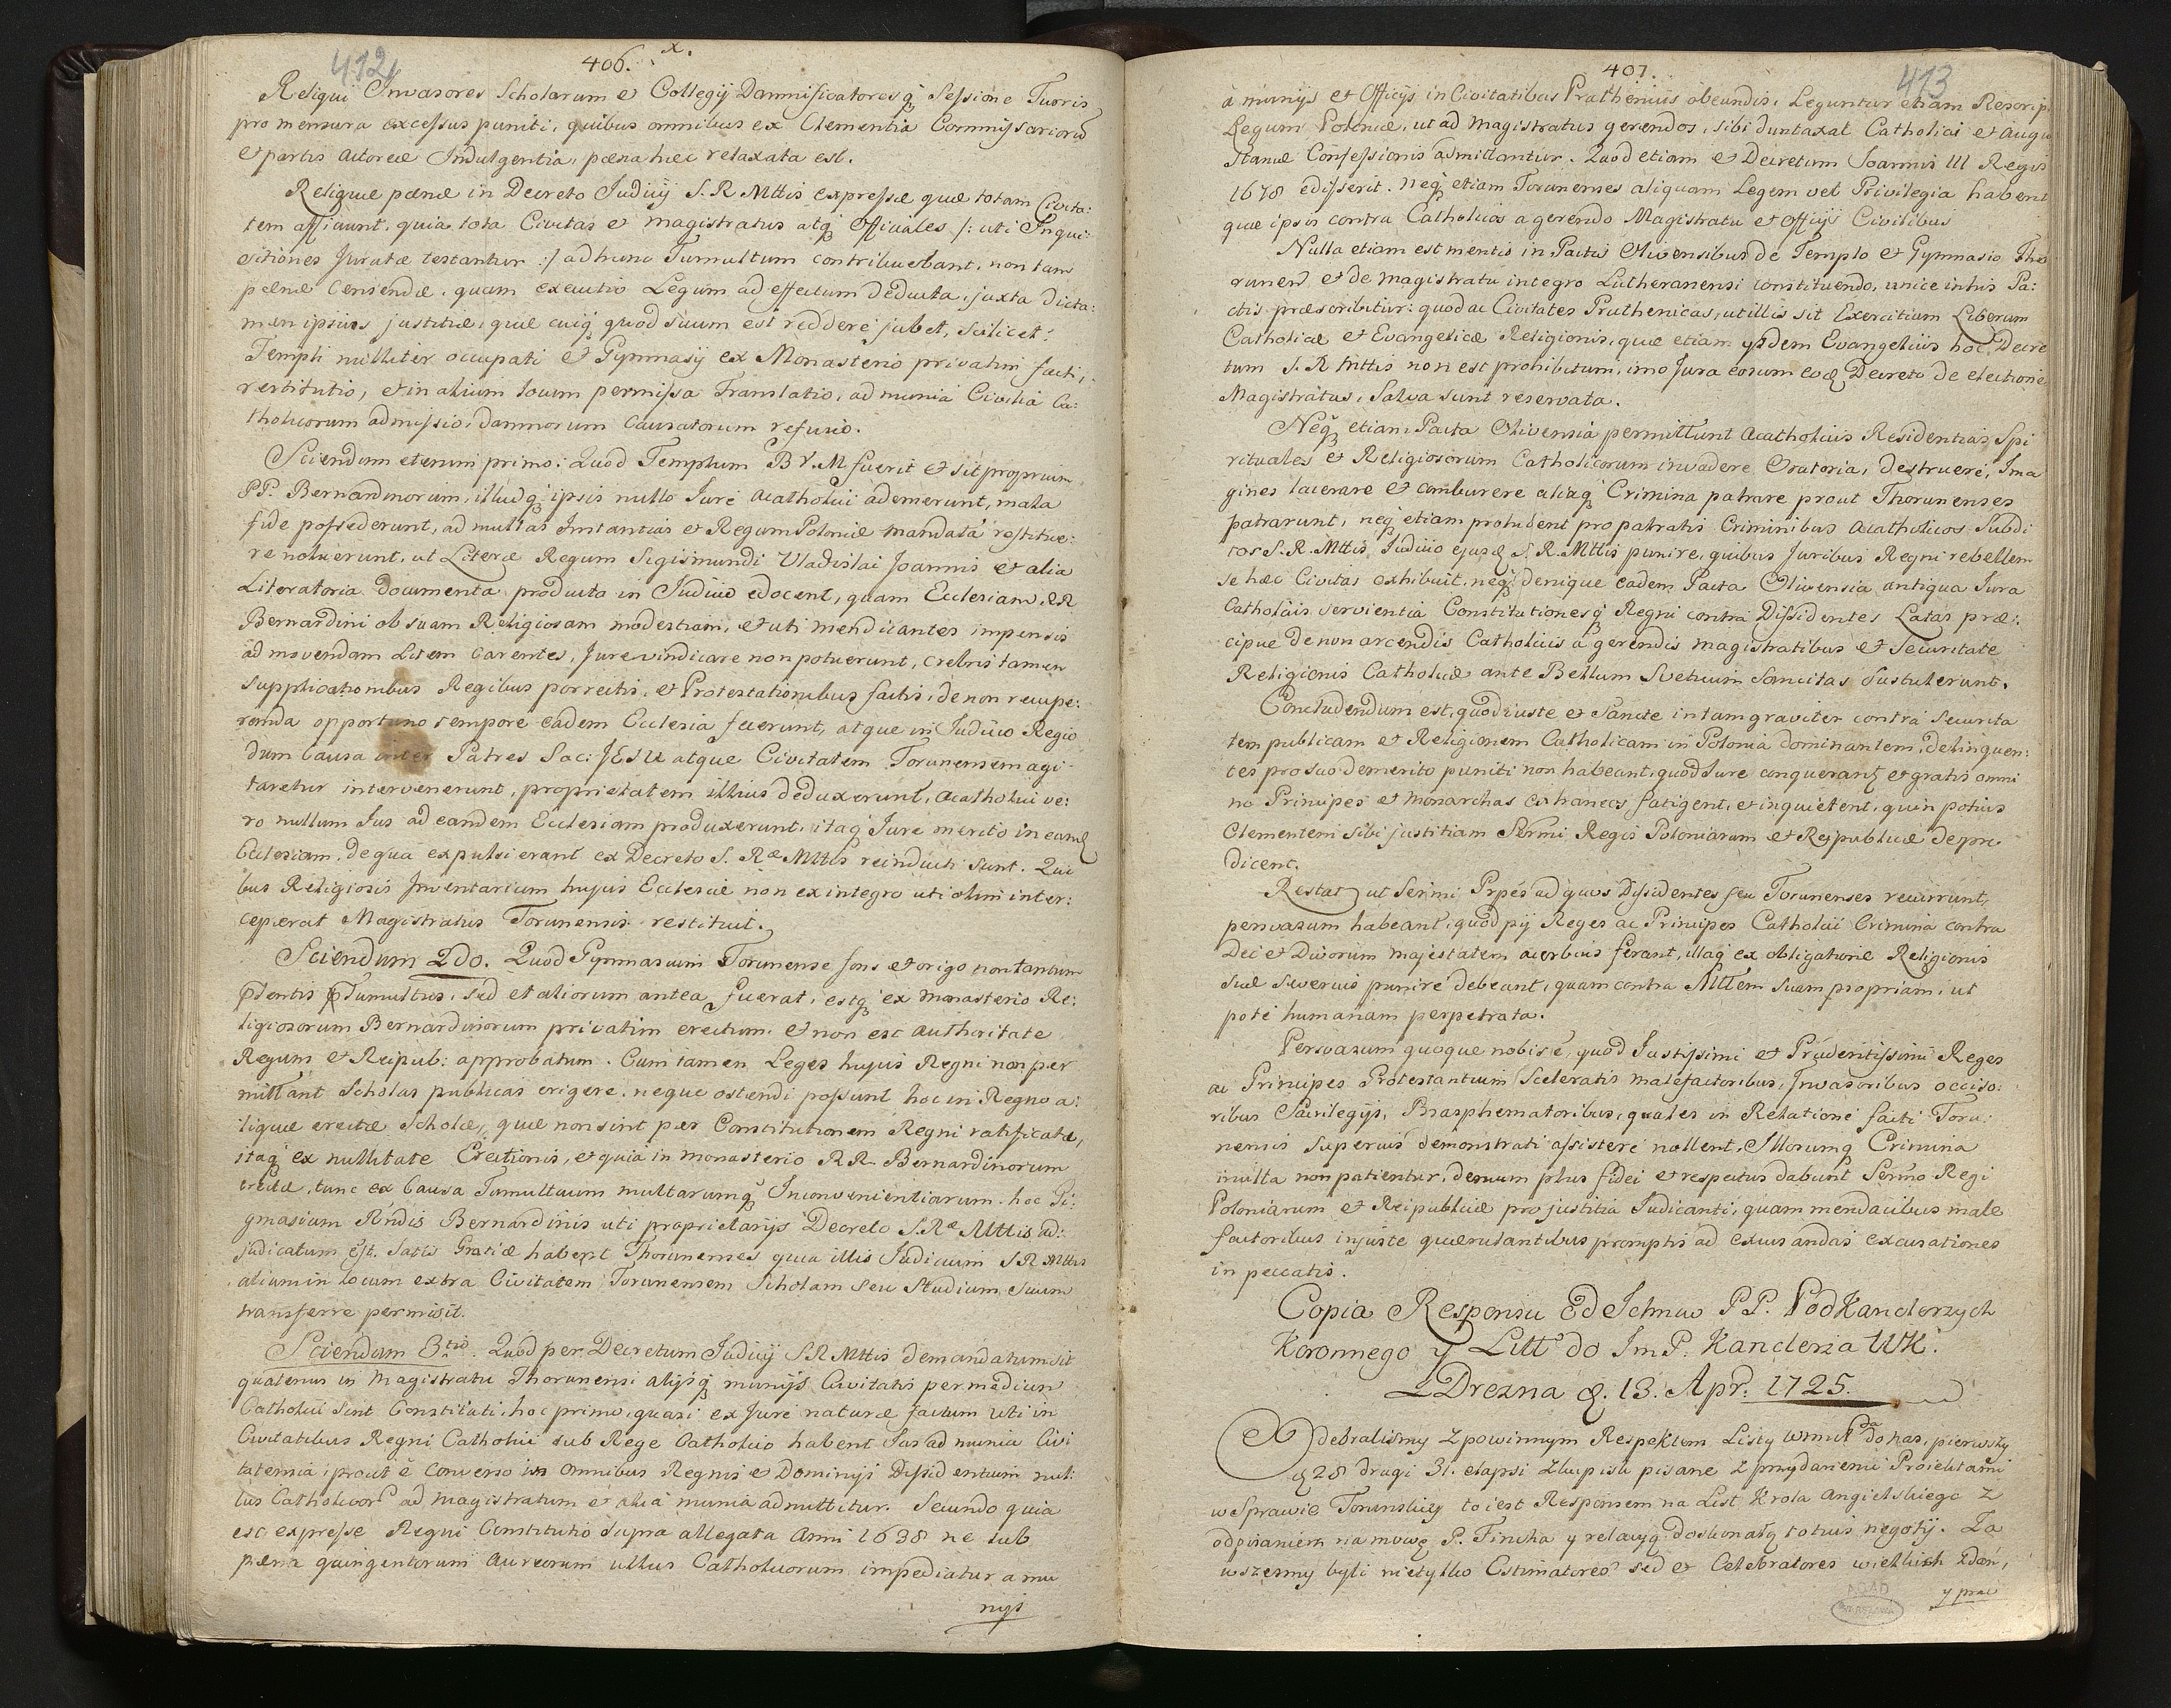 412
406. x.
Reliqui Invasores Scholarum et Collegij Damnificatores q̨ Sessione Turris
pro mensura excessus puniti, quibus omnibus ex Clementia Commissariorũ
et partis Actoreæ Indulgentia, pœna hæc relaxata est.
Reliquæ pœnæ in Decreto Judicij S. R Mttis expressæ quæ totam Civita:
tem afficiunt, quia tota Civitas et magistratus atq̨ Officiales /: uti Inqui:
sitiones Juratæ testantur :/ ad hunc Tumultum contribuebant, non tam
pœnæ Censendæ, quam executio Legum ad effectum deducta, juxta dicta:
men ipsius justitiæ, quæ cuiq̨ quod suum est reddere jubet, scilicet:
Templi nulliter occupati et Gymnasij ex Monasterio privatim facti,
restitutio, et in alium locum permissa Translatio, ad munia Civilia Ca:
tholicorum admissio, damnorum Causatorum refusio.
Sciendum etenim primo: Quod Templum B V. M fuerit et sit proprium
PP. Bernardinorum, illudq̨ ipsis nullo Jure Acatholici ademerunt, mala
fide possederunt, ad multas Instantias et Regum Poloniæ mandata restitue:
re noluerunt, ut Literæ Regum Sigismundi Vladislai Joannis et alia
Literatoria documenta producta in Judicio edocent, quam Ecclesiam RR
Bernardini ob suam Religiosam modestiam, et uti mendicantes impensis
ad movendam Litem Carentes, Jure vindicare non potuerunt, crebris tamen
supplicationibus Regibus porrectis, et Protestationibus factis, de non recupe:
randa opportuno tempore eadem Ecclesia fecerunt, atque in Judicio Regio
dum Causa inter Patres Soc: JESU atque Civitatem Torunensem agi:
taretur intervenerunt, proprietatem illius deduxerunt, Acatholici ve:
ro nullum Jus ad eandem Ecclesiam produxerunt, itaq̨ Jure merito in eand
Ecclesiam, de qua expulsi erant ex Decreto S. Ræ Mttis reinducti sunt. Qui
bus Religiosis Inventarium hujus Ecclesiæ non ex integro uti olim inter:
ceperat Magistratus Torunensis restituit.
Sciendum 2do. Quod Gymnasium Torunense fons et origo non tantum
Tumultus, sed et aliorum antea fuerat, estq̨ ex monasterio Re:
ligiosorum Bernardinorum privatim erectum et non est authoritate
Regum et Reipub: approbatum. Cum tamen Leges hujus Regni non per
mittant Scholas publicas erigere, neque ostendi possunt hoc in Regno a:
liquæ erectæ Scholæ, quæ non sint per Constitutionem Regni ratificatæ,
itaq̨ ex nullitate Erectionis, et quia in monasterio RR Bernardinorum
erectæ, tunc ex Causa Tumultuum multarumq̨ Inconvenientiarum hoc Gi:
gmasium Rńdis Bernardinis uti proprietarijs Decreto S. Ræ Mttis ad:
judicatum est. Satis Gratiæ habent Thorunenses quia illis Judicium S R Mttis
alium in locum extra Civitatem Torunensem Scholam seu Studium suum
transferre permisit.
Sciendum 3tio. Quod per Decretum Judicij S R Mttis demandatum sit
quatenus in Magistratu Thorunensi alijsq̨ munijs Civitatis per medium
Catholici sint Constituti, hoc primo, quasi ex Jure naturæ factum uti in
Civitatibus Regni Catholici sub Rege Catholico habent Jus ad munia Civi
tatensia, prout è Converso in omnibus Regnis et Dominijs Dissidentium nul:
lus Catholicor ad magistratum et alia munia admittitur. Secundo quia
est expresse Regni Constitutio supra allegata Anni 1638 ne sub
pæna quingentorum Aureorum ullus Catholicorum impediatur a mu
nijs
407.
413
a munijs et Officijs in Civitatibus Prathenius obeundis. Leguntur etiam Rescrip
Legum Poloniæ, ut ad magistratus gerendos, sibi duntaxat Catholici et Augu
stanæ Confessionis admittantur. Quod etiam et Decretum Joannis III Regis
1678 edisserit. Neq̨ etiam Torunenses aliquam Legem vel Privilegia habent
quæ ipsis contra Catholicos a gerendo Magistratu et Officijs Civilibus
Nulla etiam est mentio in Pactis Olivensibus de Templo et Gymnasio Tho
runen et de magistratu integro Lutheranensi constituendo, unice in his Pa:
ctis præscribitur: quod ac Civitates Pruthenicas, ut illis sit Exercitium Liberum
Catholicæ et Evangelicæ Religionis, quæ etiam ijsdem Evangelicis hoc Decre
tum S. R Mttis non est prohibitum, imo Jura eorum eod Decreto de electione
Magistratus, Salva sunt reservata.
Neq̨ etiam Pacta Olivensia permittunt Acatholicis Residentias Spi
rituales et Religiosorum Catholicorum invadere Oratoria, destruere, Ima
gines lacerare et comburere aliaq̨ Crimina patrare prout Thorunenses
patrarunt, neq̨ etiam prohibent pro patratis Criminibus Acatholicos Subdi
tos S. R. Mttis, Judicio ejusd S. R. Mttis punire, quibus Juribus Regni rebellem
se hæc Civitas exhibuit, neq̨ denique eadem Pacta Olivensia antiqua Jura
Catholicis servientia Constitutionesq̨ Regni contra Dissidentes Latas præ:
cipue de non arcendis Catholicis a gerendis magistratibus et securitate
Religionis Catholicæ ante Bellum Svetuim Sancitas sustulerunt.
Concludendum est, quod iuste et Sancte in tam graviter contra securita
tem publicam et Religionem Catholicam in Polonia dominantem, delinquen:
tes pro suo demerito puniti non habeant, quod Jure conquerant et gratis omni
no Principes et Monarchas extraneos fatigent, et inquietent, quin potius
Clementem sibi justitiam Sermi Regis Poloniarum et Reipublicæ depræ
dicent.
Restat, ut Sermi Prpes ad quos Dissidentes seu Torunenses recurrunt,
persvasum habeant, quod pij Reges ac Principes Catholici Crimina contra
Dei et Divorum majestatem acerbius ferant, illaq̨ ex obligatione Religionis
suæ severius punire debeant, quam contra Mttem suam propriam, ut
pote humanam perpetrata.
Persvasum quoque nobis ẽ, quod Justissimi et Prudentissimi Reges
ac Principes Protestantium Sceleratis malefactoribus, Invasoribus occiso:
ribus Sacrilegijs, Blasphematoribus, quales in Relatione facti Toru:
nensis superius demonstrati assistere nollent, Illorumq̨ Crimina
inulta non patientur, demum plus fidei et respectus dabunt Sermo Regi
Poloniarum et Reipublicæ pro justitia Judicanti, quam mendacibus male
factoribus injuste quærulantibus promptis ad excusandas excusationes
in peccatis.
Copia Responsu Od Ichmw PP. Podkanclerzych
Koronnego y Litt do Im P. Kanclerza WK.
z Drezna d. 13. Apr. 1725.
Odebralismy z powinnym Respektem Listy wmmPda do nas, pierwszy
d 28 drugi 31. elapsi z Łupisk pisane z przydaniem Proiektami
w Sprawie Torunskiey to iest Responsem na List Krola Angielskiego z
odpisaniem na mowę P. Fincha y relacyą doskonałą totius negotij. Za
wszesmy byli nietylko Estimatores sed et Celebratores wielkich zdań,
y prac
AGAD
WARSZAWA